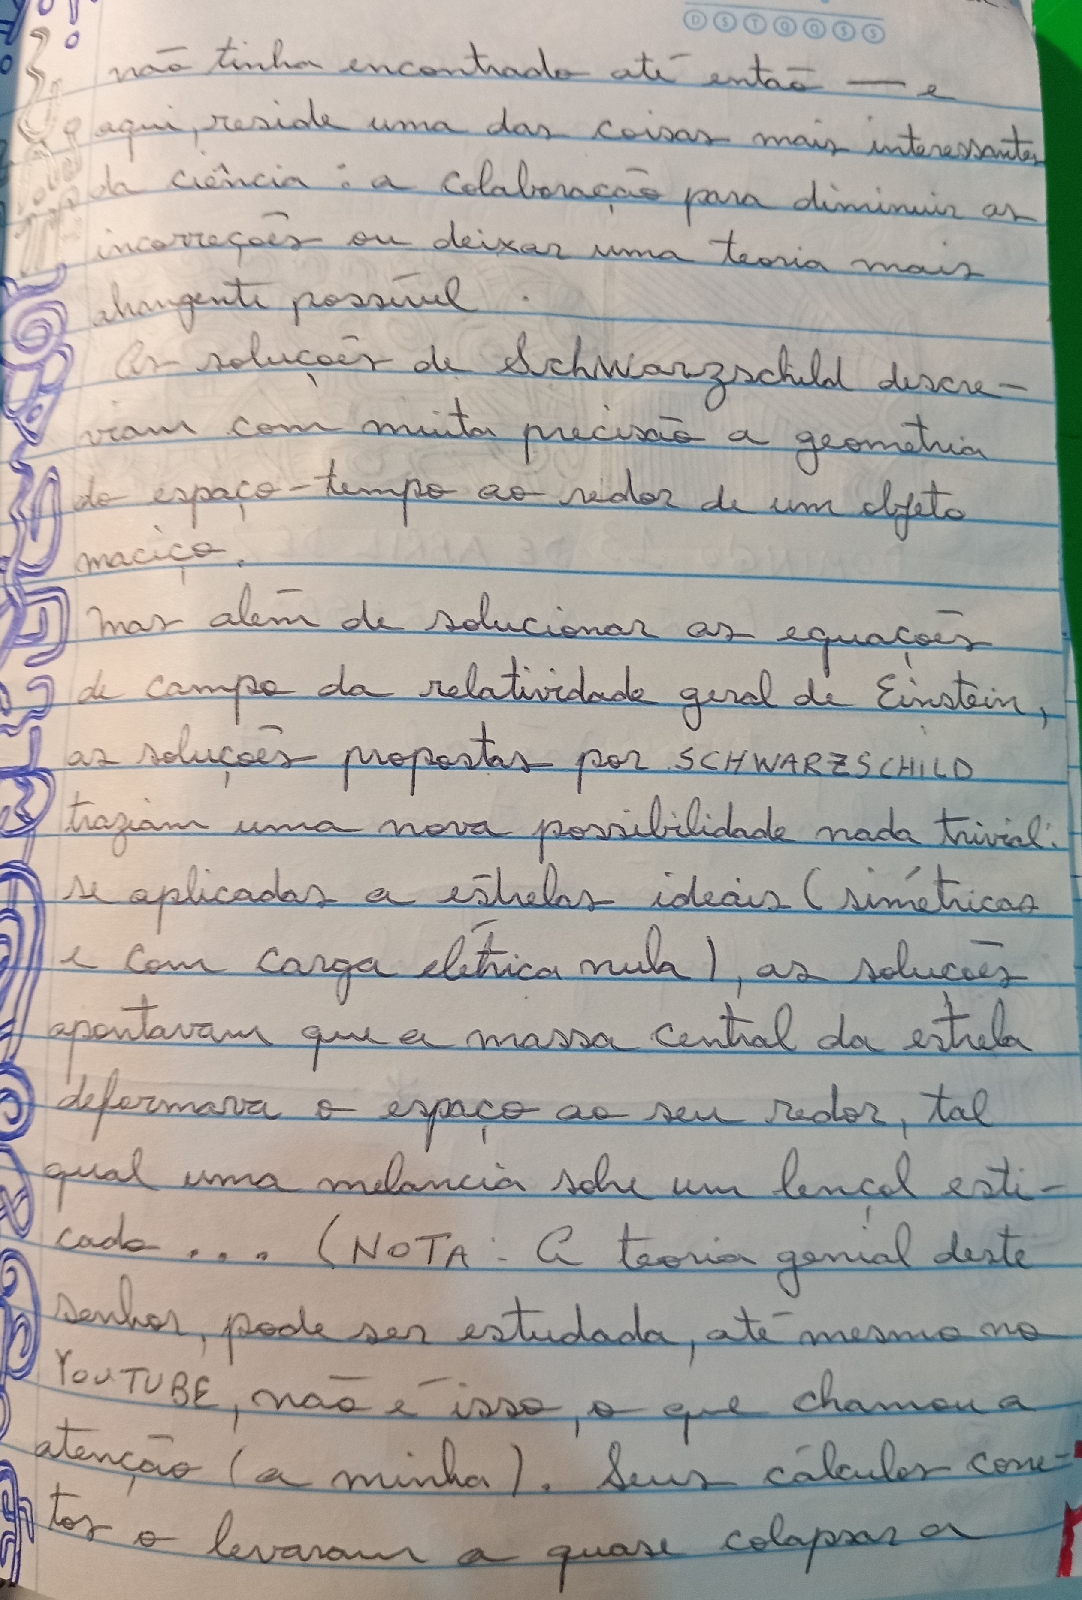 D S T Q Q S S
não tinha encontrado até então — e
aqui, reside uma das coisas mais interessantes
da ciência: a colaboração para diminuir as
incorreções ou deixar uma teoria mais
abrangente possível.
As soluções de Schwarzschild descre-
viam com muita precisão a geometria
do espaço-tempo ao redor de um objeto
maciço.
Mas além de solucionar as equações
de campo da relatividade geral de Einstein,
as soluções propostas por SCHWARZSCHILD
traziam uma nova possibilidade nada trivial:
se aplicadas a estrelas ideais (simétricas
e com carga elétrica nula), as soluções
apontavam que a massa central da estrela
deformava o espaço ao seu redor, tal
qual uma melancia sobre um lençol esti-
cado... (NOTA: A teoria genial deste
senhor, pode ser estudada, até mesmo no
YOUTUBE, não é isso, o que chamou a
atenção (a minha). Seus cálculos corre-
tos o levaram a quase colapsar a